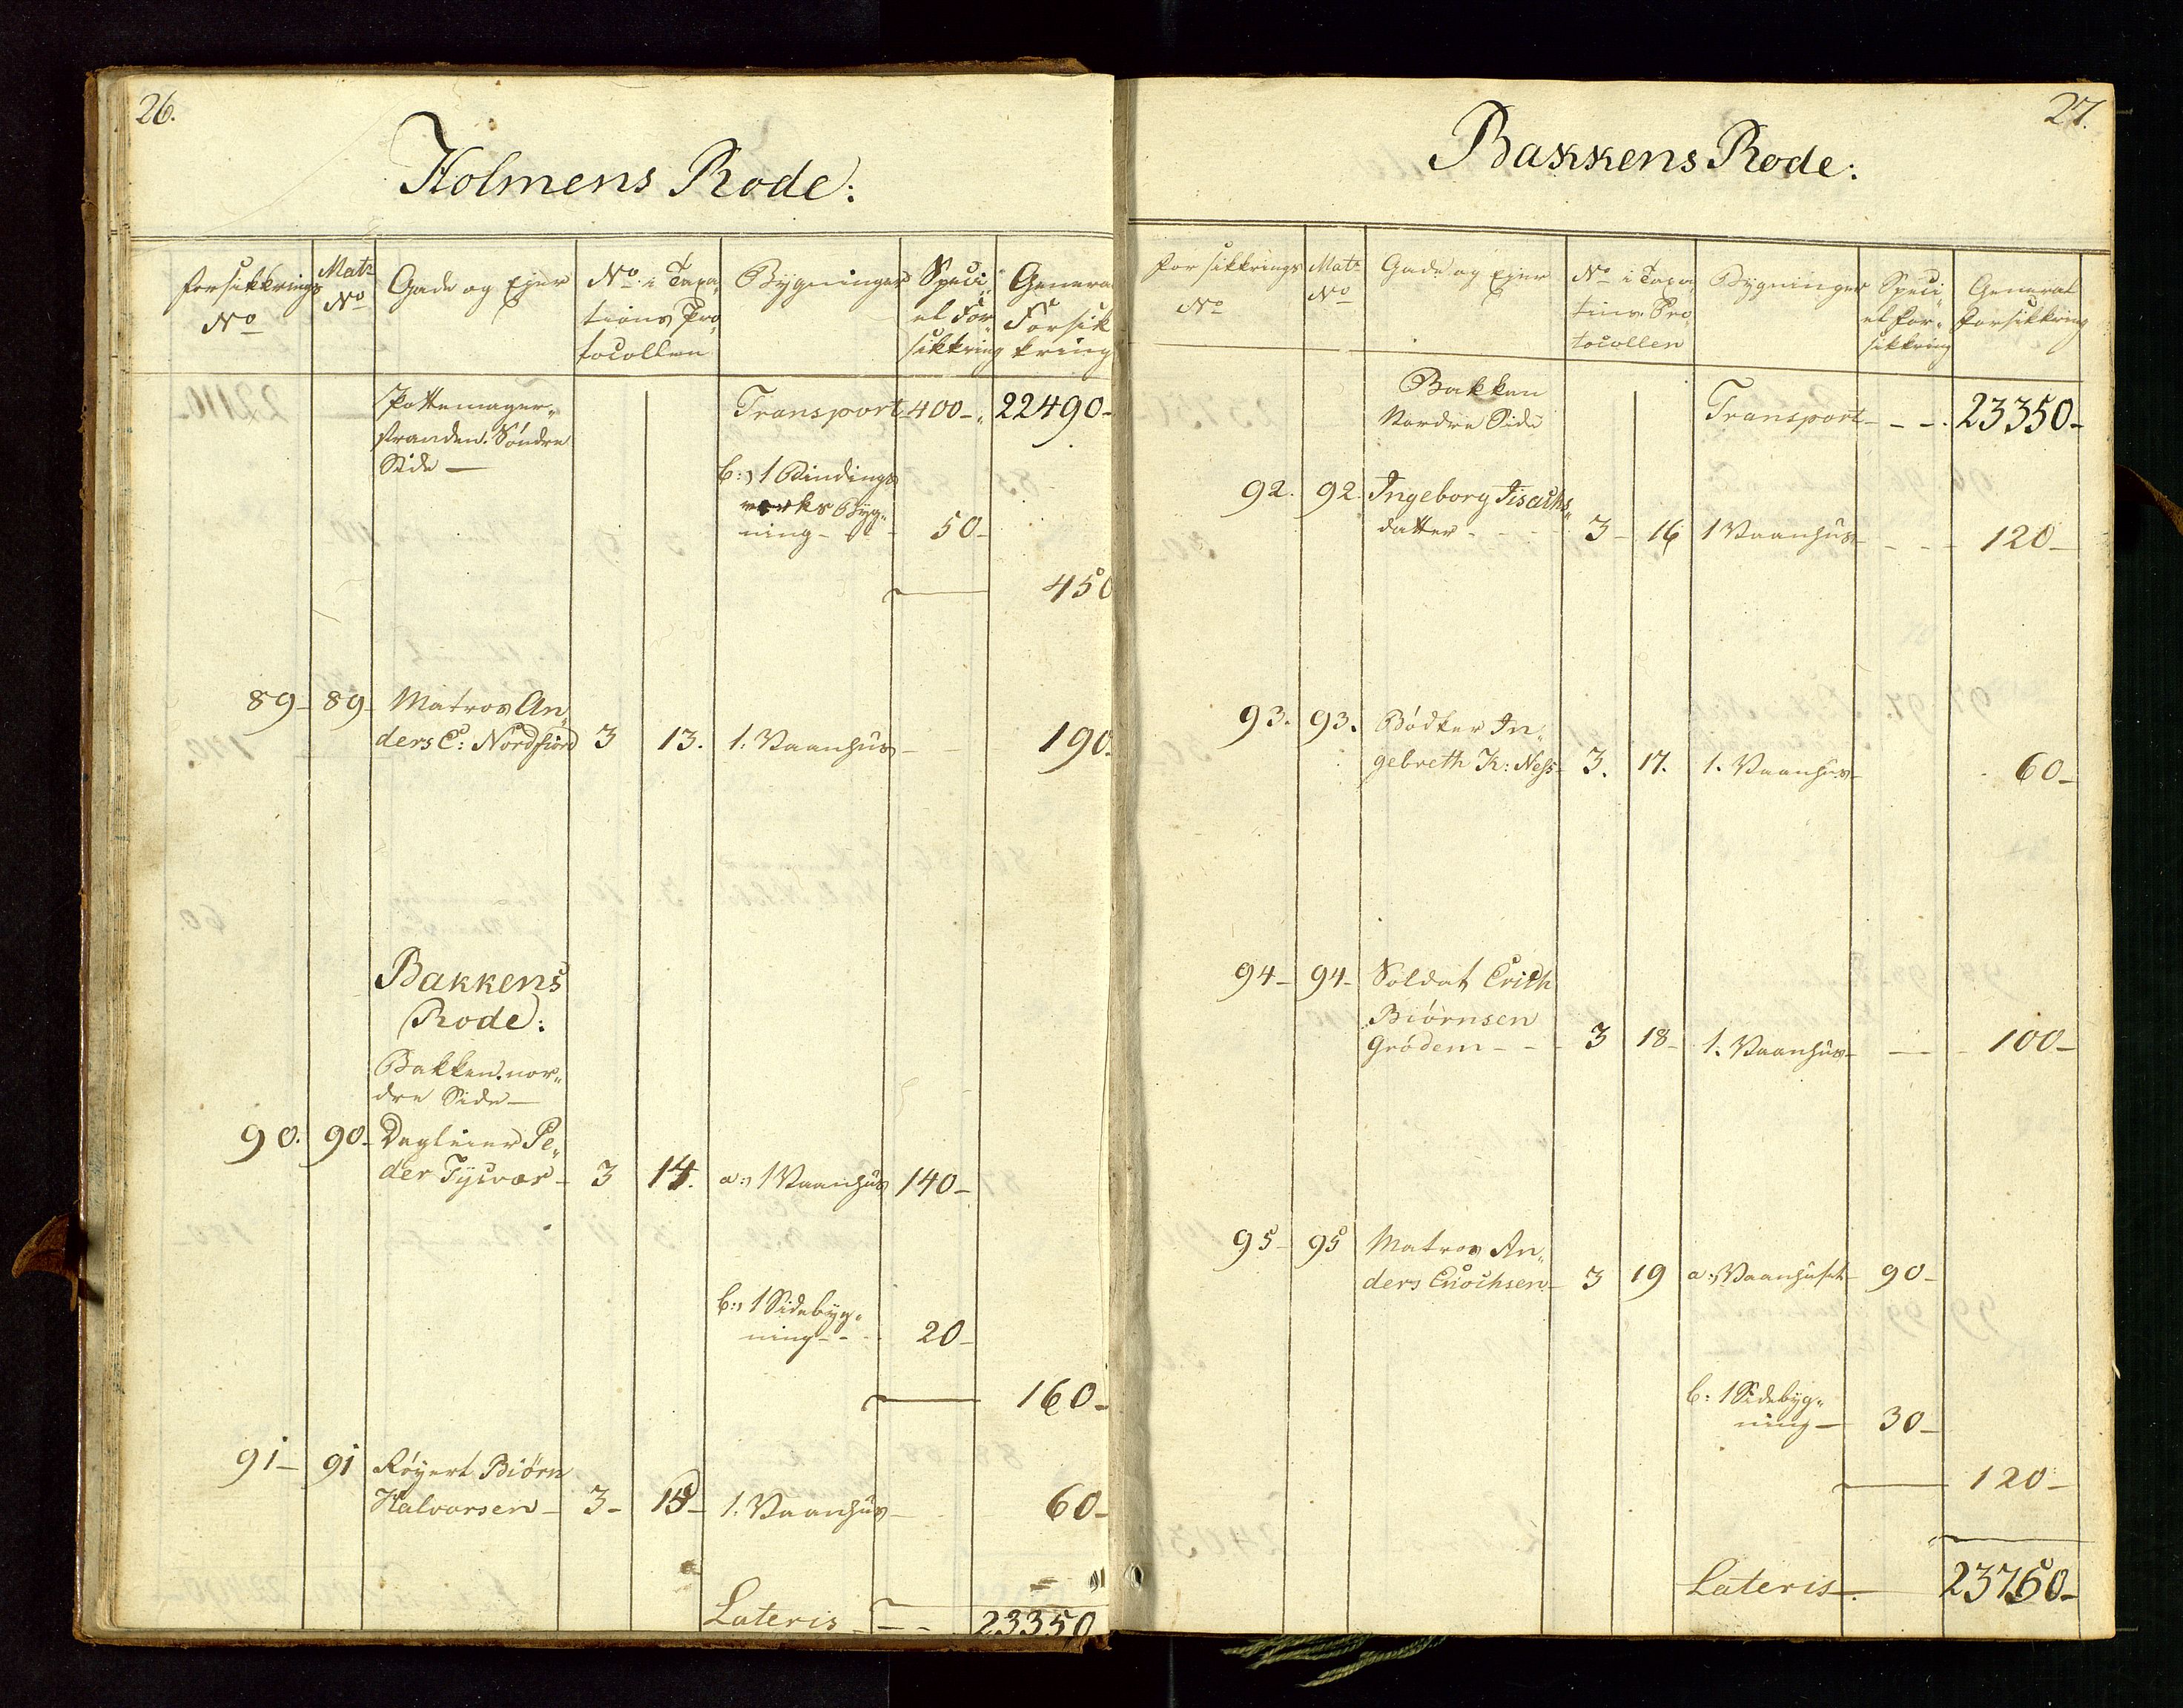 26.
Holmens Rode:
Forsikkrings No
Matr No
Gade og Ejer
No i Taxa„
tions Pro„
tocollen
Bygninger
Speci„
el For„
sikkring
General
Forsik
kring
Pottemager„
stranden. Søndre
Side —
Transport 400 - 22490-
b:, 1 Bindings
verks Byg„
ning - 50-
450
89- 89- Matros An„
ders C: Nordfiord 3 13. 1. Vaanhus - 190.
Bakkens
Rode:
Bakken. nor„
dre Side —
90. 90- Dagleier Pe„
der Tysvær - 3 14. a:, 1 Vaanhus 140-
b:, 1 Sidebyg„
ning - - 20-
160-
91- 91 Røyert Biørn
Halvorsen - 3- 15- 1. Vaanhus - 60-
Lateris - - 23350
27.
Bakkens Rode:
Forsikkrings No
Matr No
Gade og Ejer
No i Taxa„
tions Pro„
tocollen
Bygninger
Speci„
el For„
sikkring
General
Forsikkring
Bakken
Nordre Side
Transport - - - 23350-
92. 92. Ingeborg Jisachs„
datter - - - 3- 16 1 Vaanhus - - - 120-
93. 93. Bødker In„
gebreth K: Ness- 3. 17. 1. Vaanhus- 60-
94- 94- Soldat Erich
Biørnsen
Grødem - - - 3 18- 1. Vaanhus- - - 100-
95- 95 Matros An„
ders Enochsen- 3 19 a:, Vaanhuset- 90-
b: 1 Sidebyg„
ning - 30-
120-
Lateris - 23750-